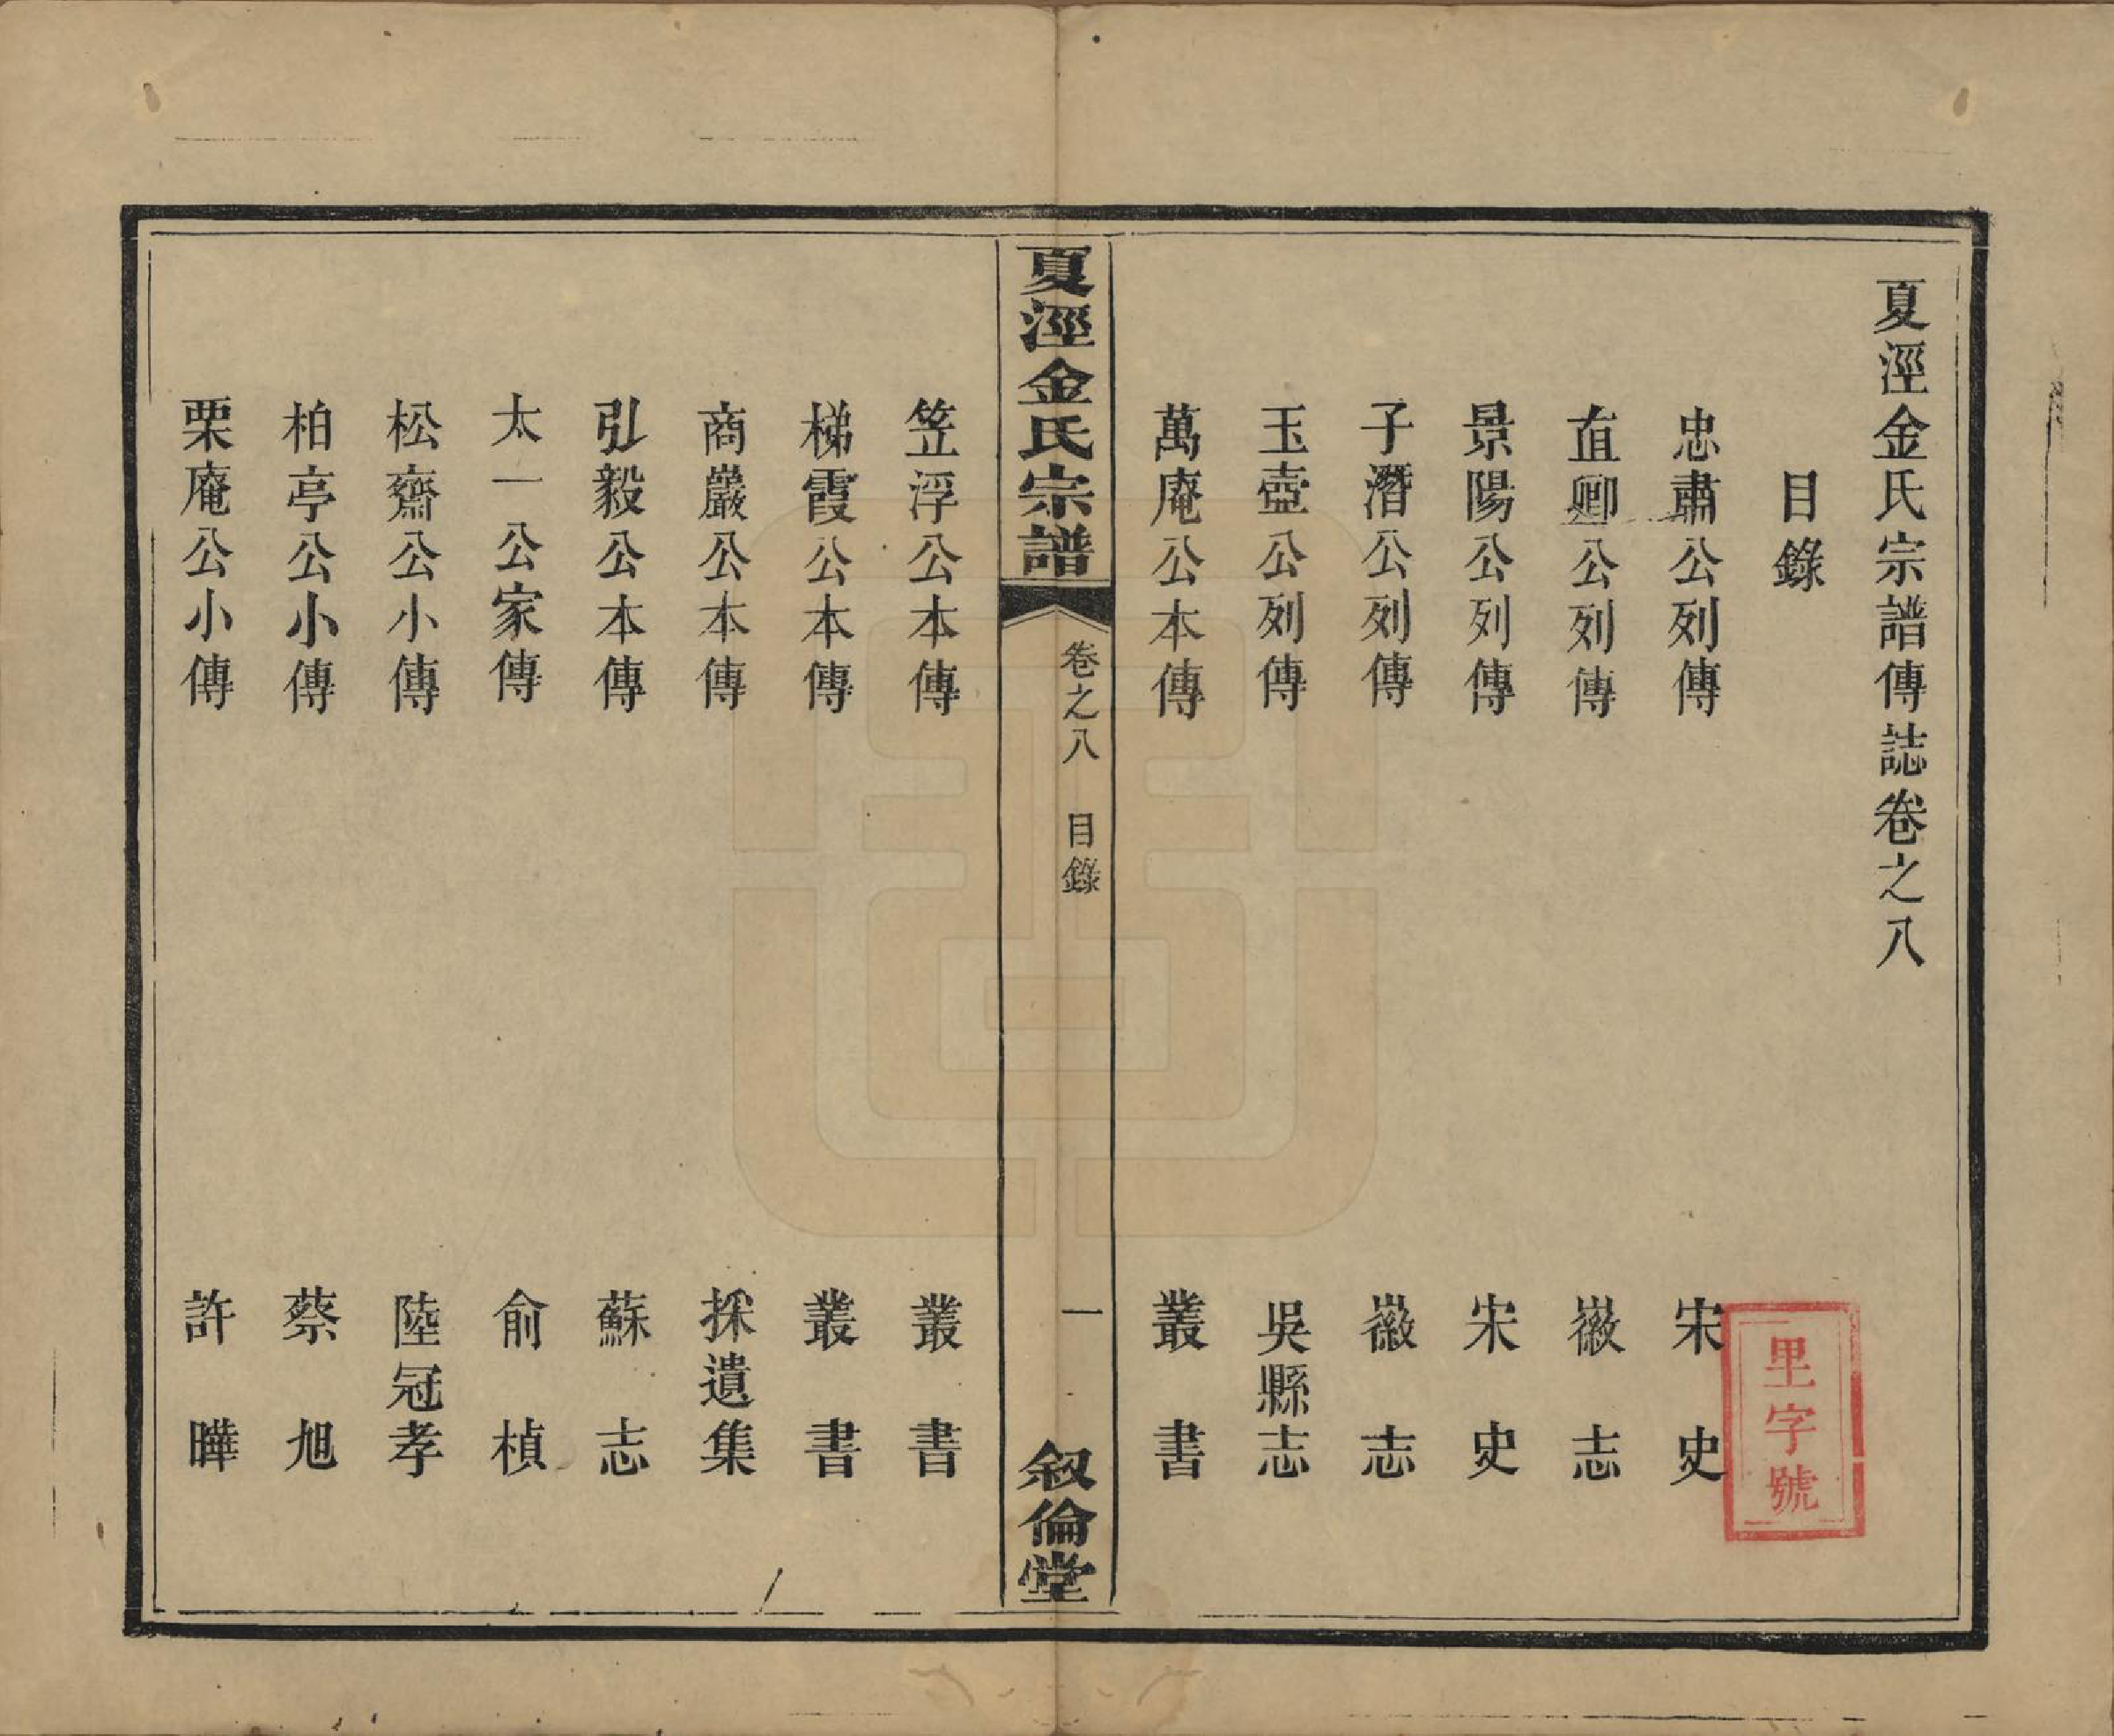 夏涇金氏宗譜傳誌卷之八
目錄
忠肅公列傳 宋史
直卿公列傳 徽志
景陽公列傳 宋史
子潛公列傳 徽志
玉壺公列傳 吳縣志
萬庵公本傳 叢書
夏涇金氏宗譜 卷之八 目錄 一 叙倫堂
笠浮公本傳 叢書
梯霞公本傳 叢書
商巖公本傳 採遺集
弘毅公本傳 蘇志
太一公家傳 俞楨
松齋公小傳 陸冠孝
柏亭公小傳 蔡旭
栗庵公小傳 許曄
里字號